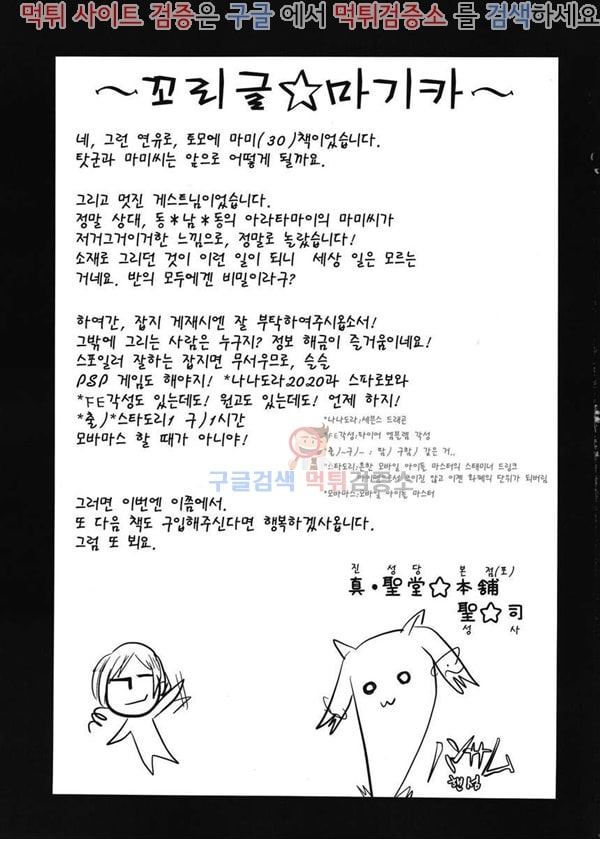 먹튀 사이트 검증은 구글 에서 먹튀검증소 를 검색하세요
~꼬리글☆마기카~
네, 그런 연유로, 토모에 마미(30)책이었습니다.
탓군과 마미씨는 앞으로 어떻게 될까요.
그리고 멋진 게스트님이었습니다.
정말 상대, 동*남*동의 아라타마이의 마미씨가
저거그거이거한 느낌으로, 정말로 놀랐습니다!
소재로 그리던 것이 이런 일이 되니 세상 일은 모르는
거네요. 반의 모두에겐 비밀이라구?
하여간, 잡지 게재시엔 잘 부탁하여주시옵소서!
그밖에 그리는 사람은 누구지? 정보 해금이 즐거움이네요!
스포일러 잘하는 잡지면 무서우므로, 슬슬
PSP 게임도 해야지! *나나도라2020과 스파로보와
*FE각성도 있는데도! 원고도 있는데도! 언제 하지!
*출)*스타도리1 구)1시간
모바마스 할 때가 아니야!
*나나도라;세븐스 드래곤
*FE각성;파이어 엠블렘 각성
*출)-구)- ; 팝) 구팝) 같은 거..
*스타도리;흔한 모바일 아이돌 마스터의 스테미너 드링크
않고 이젠 화폐의 단위가 되버림
*모바마스;모바일 아이돌 마스터
구글검색 먹튀검증소
그러면 이번엔 이쯤에서.
또 다음 책도 구입해주신다면 행복하겠사옵니다.
그럼 또 뵈요.
진 성 당 본 점(포)
真・聖堂☆本舗
聖☆司
성 사
핸섬